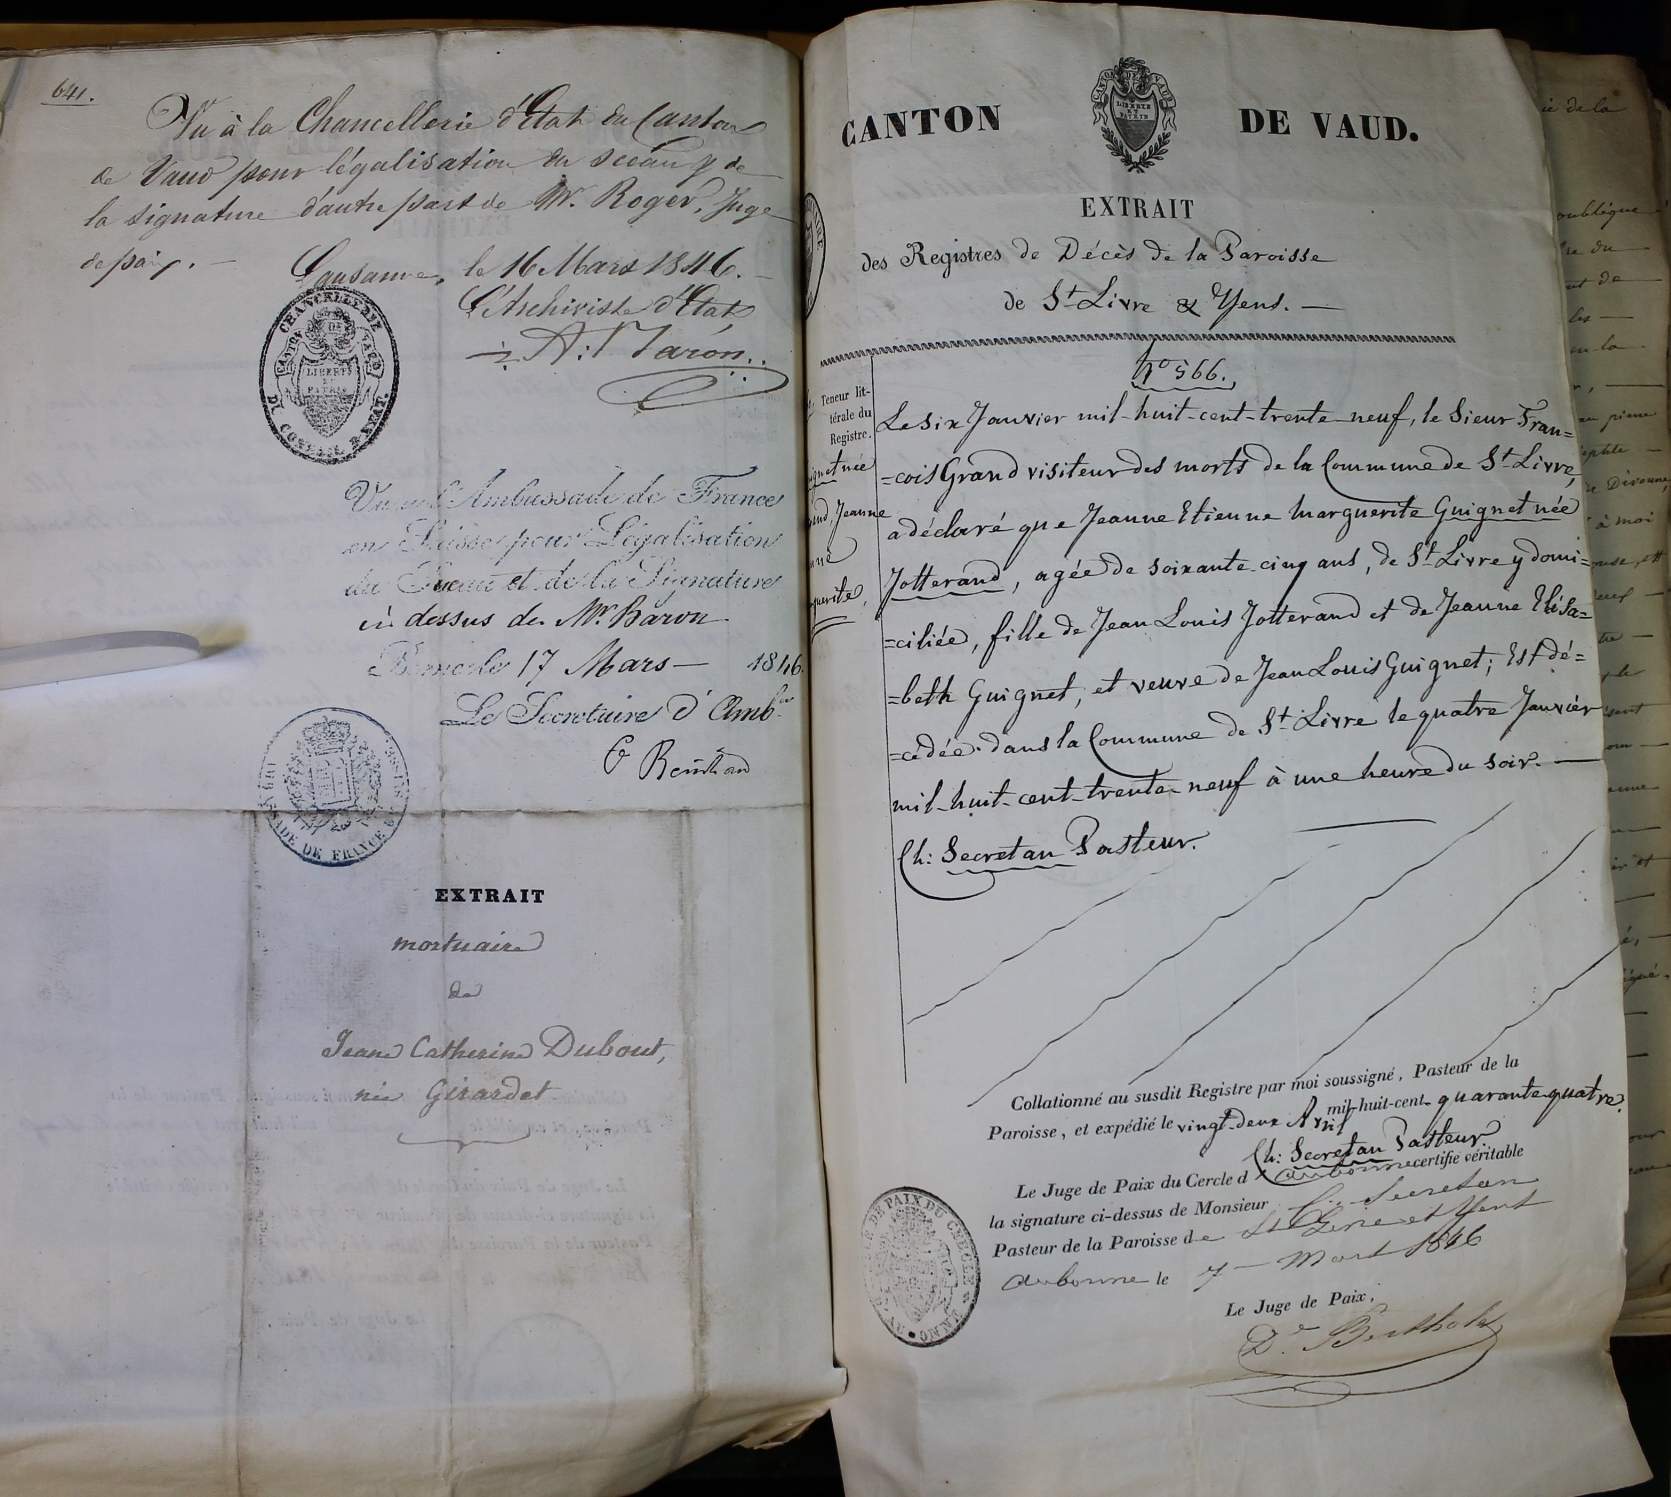 641.
Vu à la Chancellerie d'Etat du Canton
de Vaud pour légalisation du sceau & de
la signature d'autre part de Mr. Roger, Juge
de paix. —
Lausanne, le 16 Mars 1846. —
L'Archiviste d'Etat,
A: Baron.
CHANCELLERIE DU CONSEIL D'ETAT.
CANTON DE VAUD
LIBERTÉ
ET
PATRIE
Vu à l'Ambassade de France
en Suisse pour Légalisation
du Sceau et de la Signature
ci dessus de Mr. Baron
Berne le 17 Mars — 1846.
Le Secretaire d'Amb.
AMBASSADE DE FRANCE
EXTRAIT
mortuaire
de
Jeanne Catherine Dubout,
née Girardet
CANTON DE VAUD.
CANTON DE VAUD
LIBERTE
ET
PATRIE
EXTRAIT
des Registres de Décès de la Paroisse
de St. Livre & Yens. —
No 566.
Teneur lit-
térale du
Registre.
Le six Janvier mil-huit-cent-trente-neuf, le Sieur Fran=
=cois Grand visiteur des morts de la Commune de St. Livre,
a déclaré que Jeanne Etienne Marguerite Guignet née
Jotterand, agée de soixante-cinq ans, de St. Livre y domi=
=ciliée, fille de Jean Louis Jotterand et de Jeanne Elisa=
=beth Guignet, et veuve de Jean Louis Guignet; Est dé=
=cédée dans la Commune de St. Livre le quatre Janvier
mil-huit-cent-trente-neuf à une heure du soir. —
Ch: Secretan Pasteur.
Collationné au susdit Registre par moi soussigné, Pasteur de la
Paroisse, et expédié le vingt-deux Avril mil-huit-cent-quarante quatre.
Ch: Secretan Pasteur
Le Juge de Paix du Cercle d'Aubonne certifie véritable
la signature ci-dessus de Monsieur Ch. Secretan
Pasteur de la Paroisse de St Livre et Yens
Aubonne le 7 — Mars 1846
Le Juge de Paix,
DE PAIX DU CERCLE